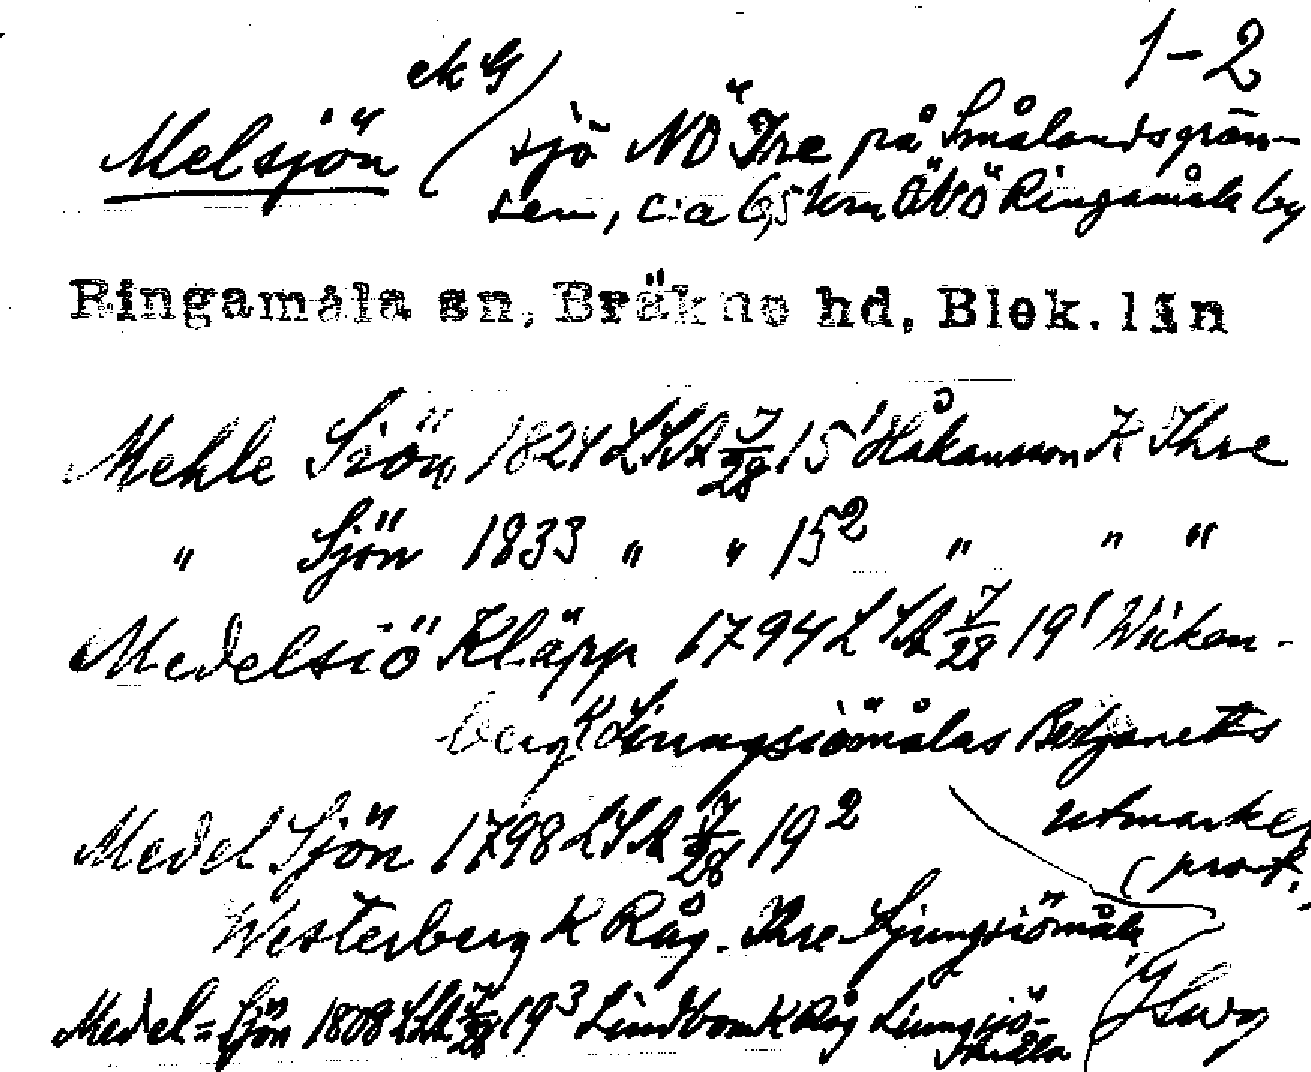 1-2
ek G
Melsjön sjö NO Ihre på Smålandsgrän-
sen, ca 6,5 km ÖNÖ Ringamåla by
Ringamåla sn, Bräkne hd, Blek. län
Mehle Siön 1824 LSA 7/28 15¹ Håkansson K Ihre
" Sjön 1833 " " 15² " " "
Medelsiö Kläpp 1794 LSA 7/28 19¹ Wicken-
berg K Liungsiömålas
utmarker
Medel Sjön 1798 LSA 7/28 19²
(prot.
Westerberg K Råg. Ihre-Ljungsiömåla
Medel=Sjön 1808 LSA 7/28 19³ Lindbom K Råg Liungsjö-
måla